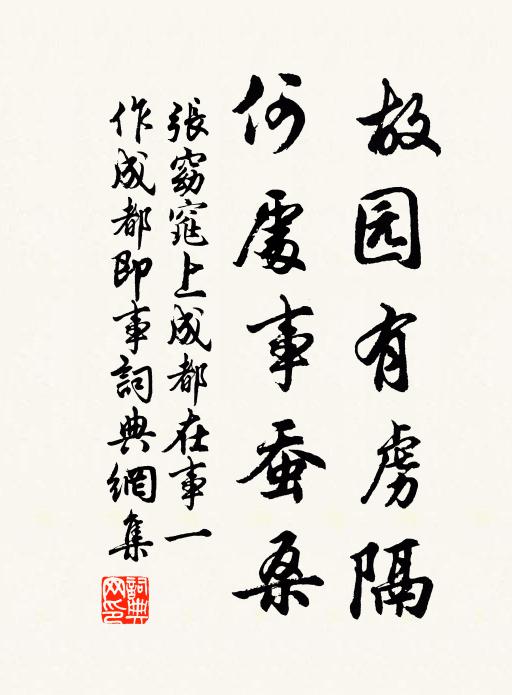 故园有虏隔
何處事蚕桑
張窈窕上成都在事一
作成都即事詞典網集
詞典网印